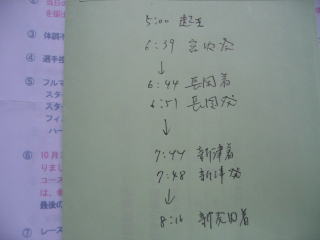 5:00 起き
6:39 宮内発
↓
6:44 長岡着
6:51 長岡発
↓
7:44 新津着
7:48 新津発
↓
8:16 新発田着
③ 体調不
④ 選手控
⑤ フルマ
スター
スター
フィ
ハー
⑥ 10月
りまし
コース
は、
最後の
⑦ レース